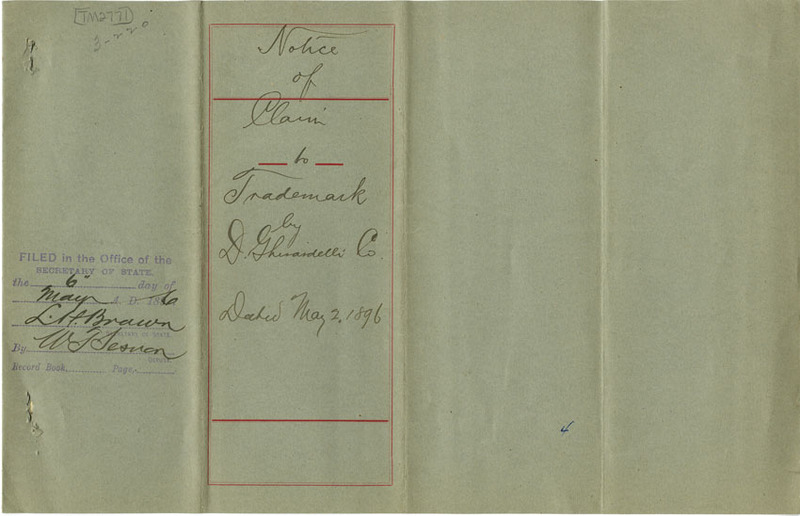 TM2771
3-220
Notice
of
Claim
to
Trademark
by
D. Ghirardelli Co.
Dated May 2, 1896
FILED in the Office of the
SECRETARY OF STATE,
the 6 day of
May A. D. 1896
L. H. Brown
SECRETARY OF STATE.
By W T Sesnon
DEPUTY.
Record Book, Page,
4